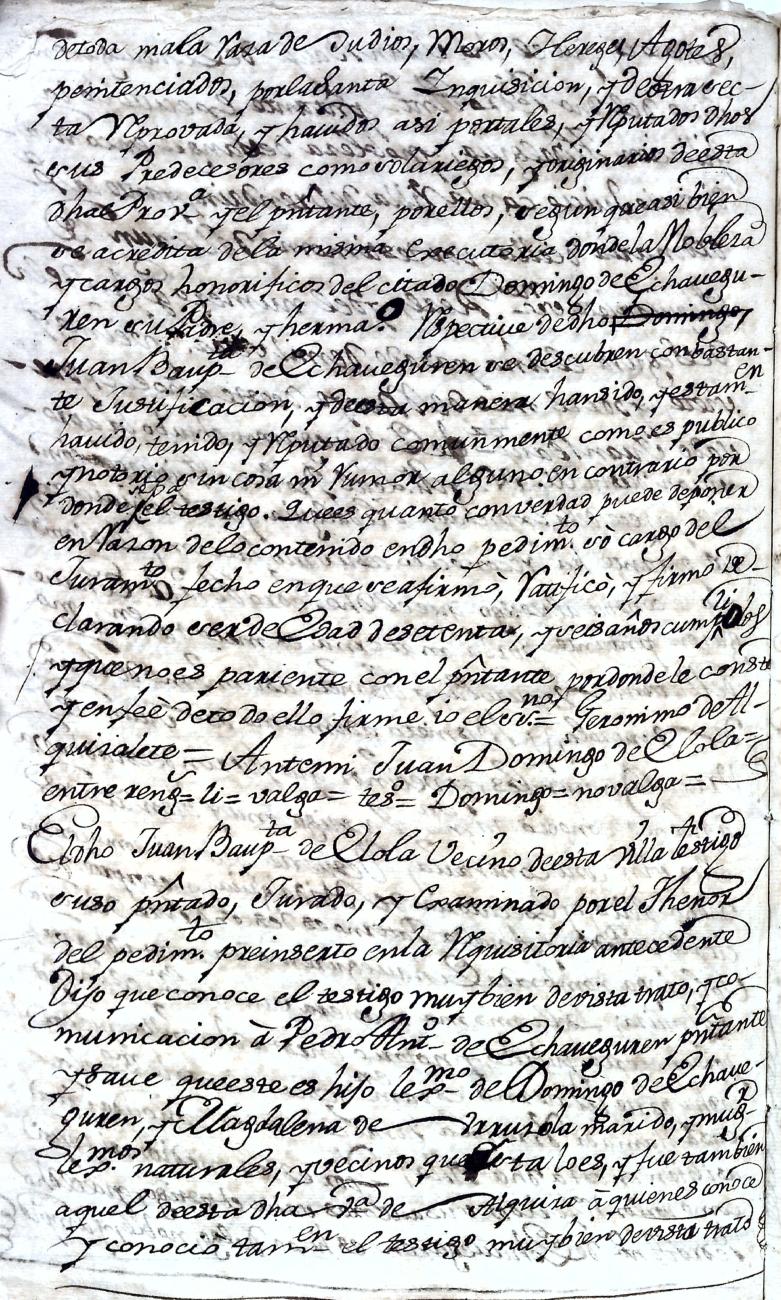 detoda mala Raza de Judios, Moros, Hereges, Agotes,
penitenciados, porla Santa Inquisicion, y de otra sec-
ta Reprovada, y havidos asi portales, y Reputados dhos
sus Predecesores como solariegos, y originarios de esta
dha Prov.ª y el pñtante, por ellos, segun que asi bien
se acredita dela misma executoria donde la Nobleza
y cargos honorificos del citado Domingo de Echavegu-
ren su Padre, y herma.º Respective de dho Domingo
Juan Baup.ta de Echaveguren se descubren con bastan-
te Justificacion, y de esta manera han sido, y estam.en
havido, tenido, y Reputado comunmente como es publico
y notorio sin cosa ni Rumor alguno en contrario por
donde el testigo. Que es quanto con verdad puede deponer
en Razon delo contenido en dho pedim.to sò cargo del
Juram.to fecho en que se afirmò, Ratificò, y firmo de-
clarando ser de Edad de setenta, y seis años cumplidos
y que no es pariente con el pñtante por donde le conste
y en feè de todo ello firme io el ss.no = Geronimo de Al-
quizalete = Antemi Juan Domingo de Elola =
entre reng.s = li = valga = tes.do = Domingo = no valga =
El dho Juan Baup.ta de Elola Vecino de esta Villa testigo
suso pñtado, Jurado, y Examinado por el Thenor
del pedim.to preinserto en la Requisitoria antecedente
Dijo que conoce el testigo muy bien de vista trato, y co-
municacion à Pedro Ant.º de Echaveguren pñtante
y save que este es hijo lex.mo de Domingo de Echave-
guren, y Magdalena de Urruzola marido, y mug.r
lex.mos naturales, y vecinos que esta lo es, y fue tambien
aquel de esta dha v.ª de Alquiza à quienes conoce
y conociò tam.en el testigo muy bien de vista trato